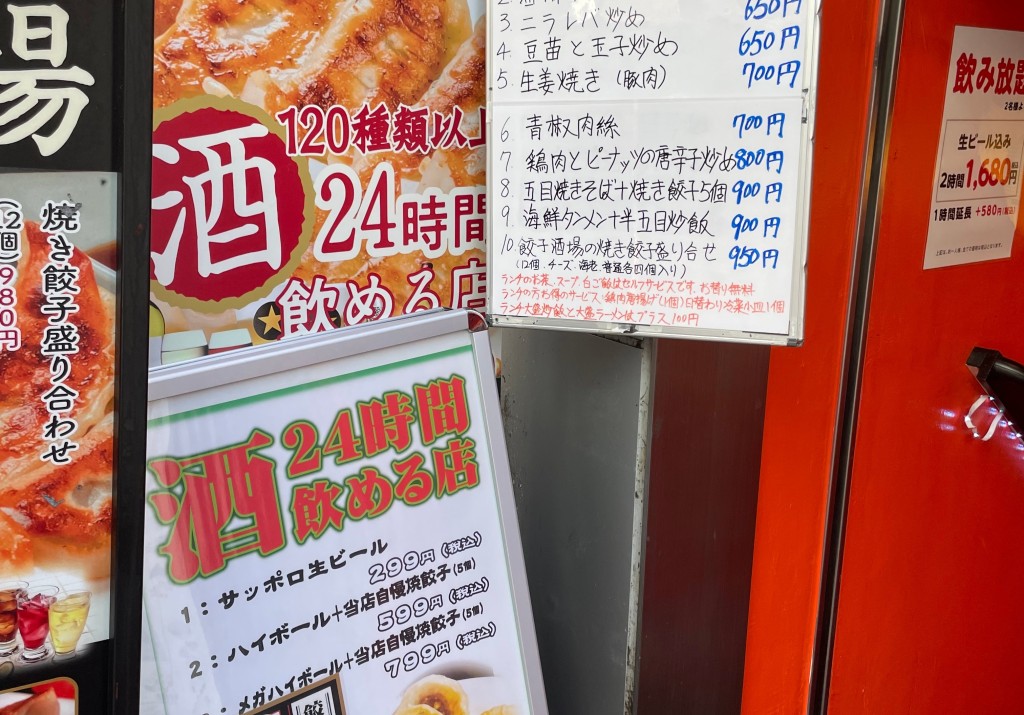 場
焼き餃子盛り合わせ
(12個)980円
酒
120種類以上
24時間
飲める店
650円
3. ニラレバ炒め
4. 豆苗と玉子炒め 650円
5. 生姜焼き (豚肉) 700円
6 青椒肉絲 700円
7. 鶏肉とピーナッツの唐辛子炒め 800円
8. 五目焼きそば+焼き餃子5個 900円
9. 海鮮タンメン+半五目炒飯 900円
10. 餃子酒場の焼き餃子盛り合せ 950円
(12個.チーズ.海老.普通各四個入り)
ランチのお茶、スープ、白ご飯はセルフサービスです.お替り無料
ランチの方お得のサービス、鶏肉唐揚げ(1個)日替わり冷菜小皿1個
ランチ大盛炒飯と大盛ラーメンはプラス100円
酒
24時間
飲める店
1:サッポロ生ビール
299円(税込)
2:ハイボール+当店自慢焼餃子(5個)
599円(税込)
メガハイボール+当店自慢焼餃子(5個)
799円(税込)
飲み放題
2名様よ
生ビール込み
2時間1,680円
1時間延長 +580円(税込)